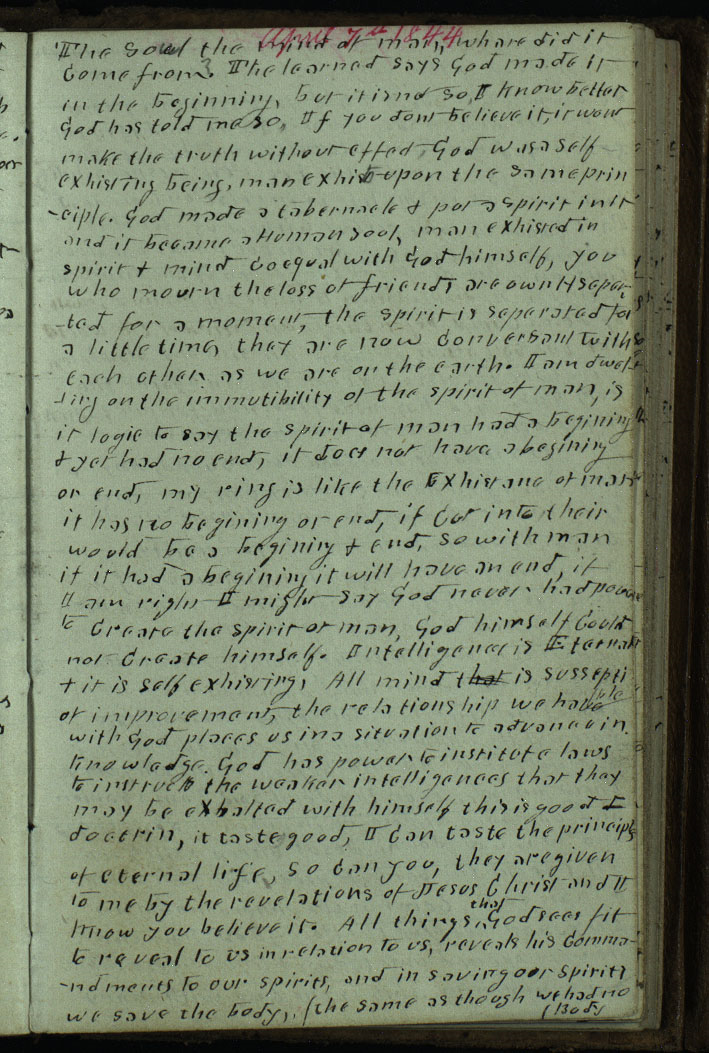 April 7th 1844
The soul the mind of man, whare did it
come from? The learned says God made it
in the beginning, but it is not so, I know better
God has told me so. If you dont believe it, it wont
make the truth without effect, God was a self
exhisting being, man exhist upon the same prin
-ciple. God made a tabernacle & put a spirit in it
and it became a Human soul, man exhisted in
spirit & mind coequal with God himself, you
who mourn the loss of friends are ownly seper
-ted for a moment, the spirit is seperated for
a little time, they are now conversant with
each other as we are on the earth. I am dwel
-ling on the immutibility of the spirit of man, is
it logic to say the spirit of man had a begining
& yet had no end, it does not have a begining
or end, my ring is like the Exhistance of man
it has no begining or end, if cut into their
would be a begining & end, so with man
if it had a begining it will have an end, if
I am right I might say God never had power
to create the spirit of man, God himself could
not create himself. Intelligence is Eternal
& it is self exhisting, All mind that is suscepti
ble
of improvement, the relationship we have
with God places us in a situation to advance in
knowledge. God has power to institute laws
to instruct the weaker intelligences that thay
may be exhalted with himself this is good
doctrin, it taste good, I can taste the principle
of eternal life, so can you, they are given
to me by the revelations of Jesus Christ and I
know you believe it. All things that God sees fit
to reveal to us in relation to us, reveals his comma-
-ndments to our spirits, and in saving our spirits
we save the body, (the same as though we had no
(Body